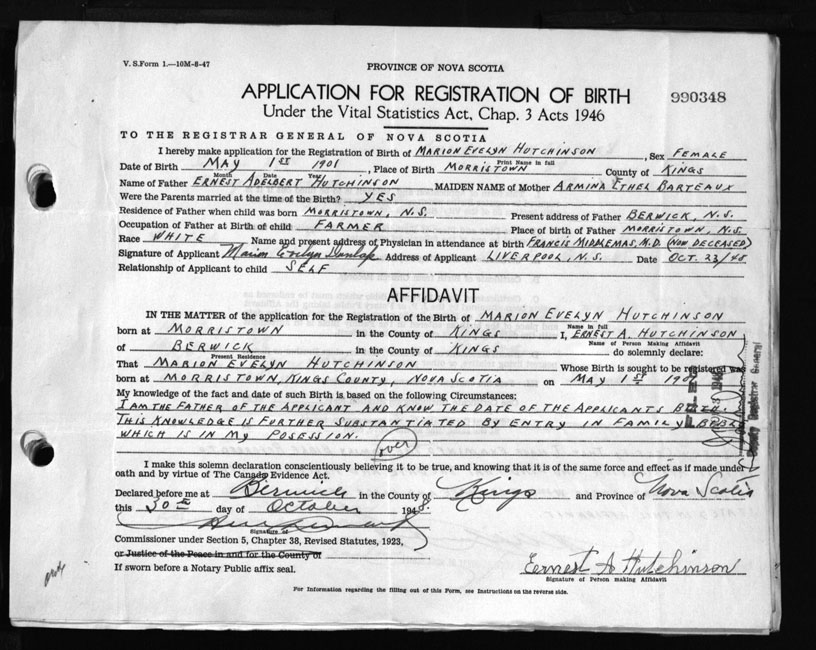 V. S. Form 1.—10M-8-47
PROVINCE OF NOVA SCOTIA
APPLICATION FOR REGISTRATION OF BIRTH
990348
Under the Vital Statistics Act, Chap. 3 Acts 1946
TO THE REGISTRAR GENERAL OF NOVA SCOTIA
I hereby make application for the Registration of Birth of MARION EVELYN HUTCHINSON, Sex FEMALE
Print Name in full
Date of Birth MAY 1ST 1901, Place of Birth MORRISTOWN County of KINGS
Month Date Year
Name of Father ERNEST ADELBERT HUTCHINSON MAIDEN NAME of Mother ARMINA ETHEL BARTEAUX
Were the Parents married at the time of the Birth? YES
Residence of Father when child was born MORRISTOWN, N.S. Present address of Father BERWICK, N.S.
Occupation of Father at Birth of child FARMER Place of birth of Father MORRISTOWN, N.S.
Race WHITE Name and present address of Physician in attendance at birth FRANCIS MIDDLEMAS, M.D. (NOW DECEASED)
Signature of Applicant Marion Evelyn Dunlap Address of Applicant LIVERPOOL, N.S. Date OCT. 23/48
Relationship of Applicant to child SELF
AFFIDAVIT
IN THE MATTER of the application for the Registration of the Birth of MARION EVELYN HUTCHINSON
Name in full
born at MORRISTOWN in the County of KINGS I, ERNEST A. HUTCHINSON
Name of Person Making Affidavit
of BERWICK in the County of KINGS do solemnly declare:
Present Residence
That MARION EVELYN HUTCHINSON Whose Birth is sought to be registered was
born at MORRISTOWN, KINGS COUNTY, NOVA SCOTIA on MAY 1ST 1901
My knowledge of the fact and date of such Birth is based on the following Circumstances:
I AM THE FATHER OF THE APPLICANT AND KNOW THE DATE OF THE APPLICANTS BIRTH.
THIS KNOWLEDGE IS FURTHER SUBSTANTIATED BY ENTRY IN FAMILY BIBLE
WHICH IS IN MY POSESSION.
over
Deputy Registrar General
I make this solemn declaration conscientiously believing it to be true, and knowing that it is of the same force and effect as if made under
oath and by virtue of The Canada Evidence Act.
Declared before me at Berwick in the County of Kings and Province of Nova Scotia
this 30th day of October 1948.
Signature of
Commissioner under Section 5, Chapter 38, Revised Statutes, 1923,
or Justice of the Peace in and for the County of
If sworn before a Notary Public affix seal.
Ernest A Hutchinson
Signature of Person making Affidavit
For Information regarding the filling out of this Form, see Instructions on the reverse side.